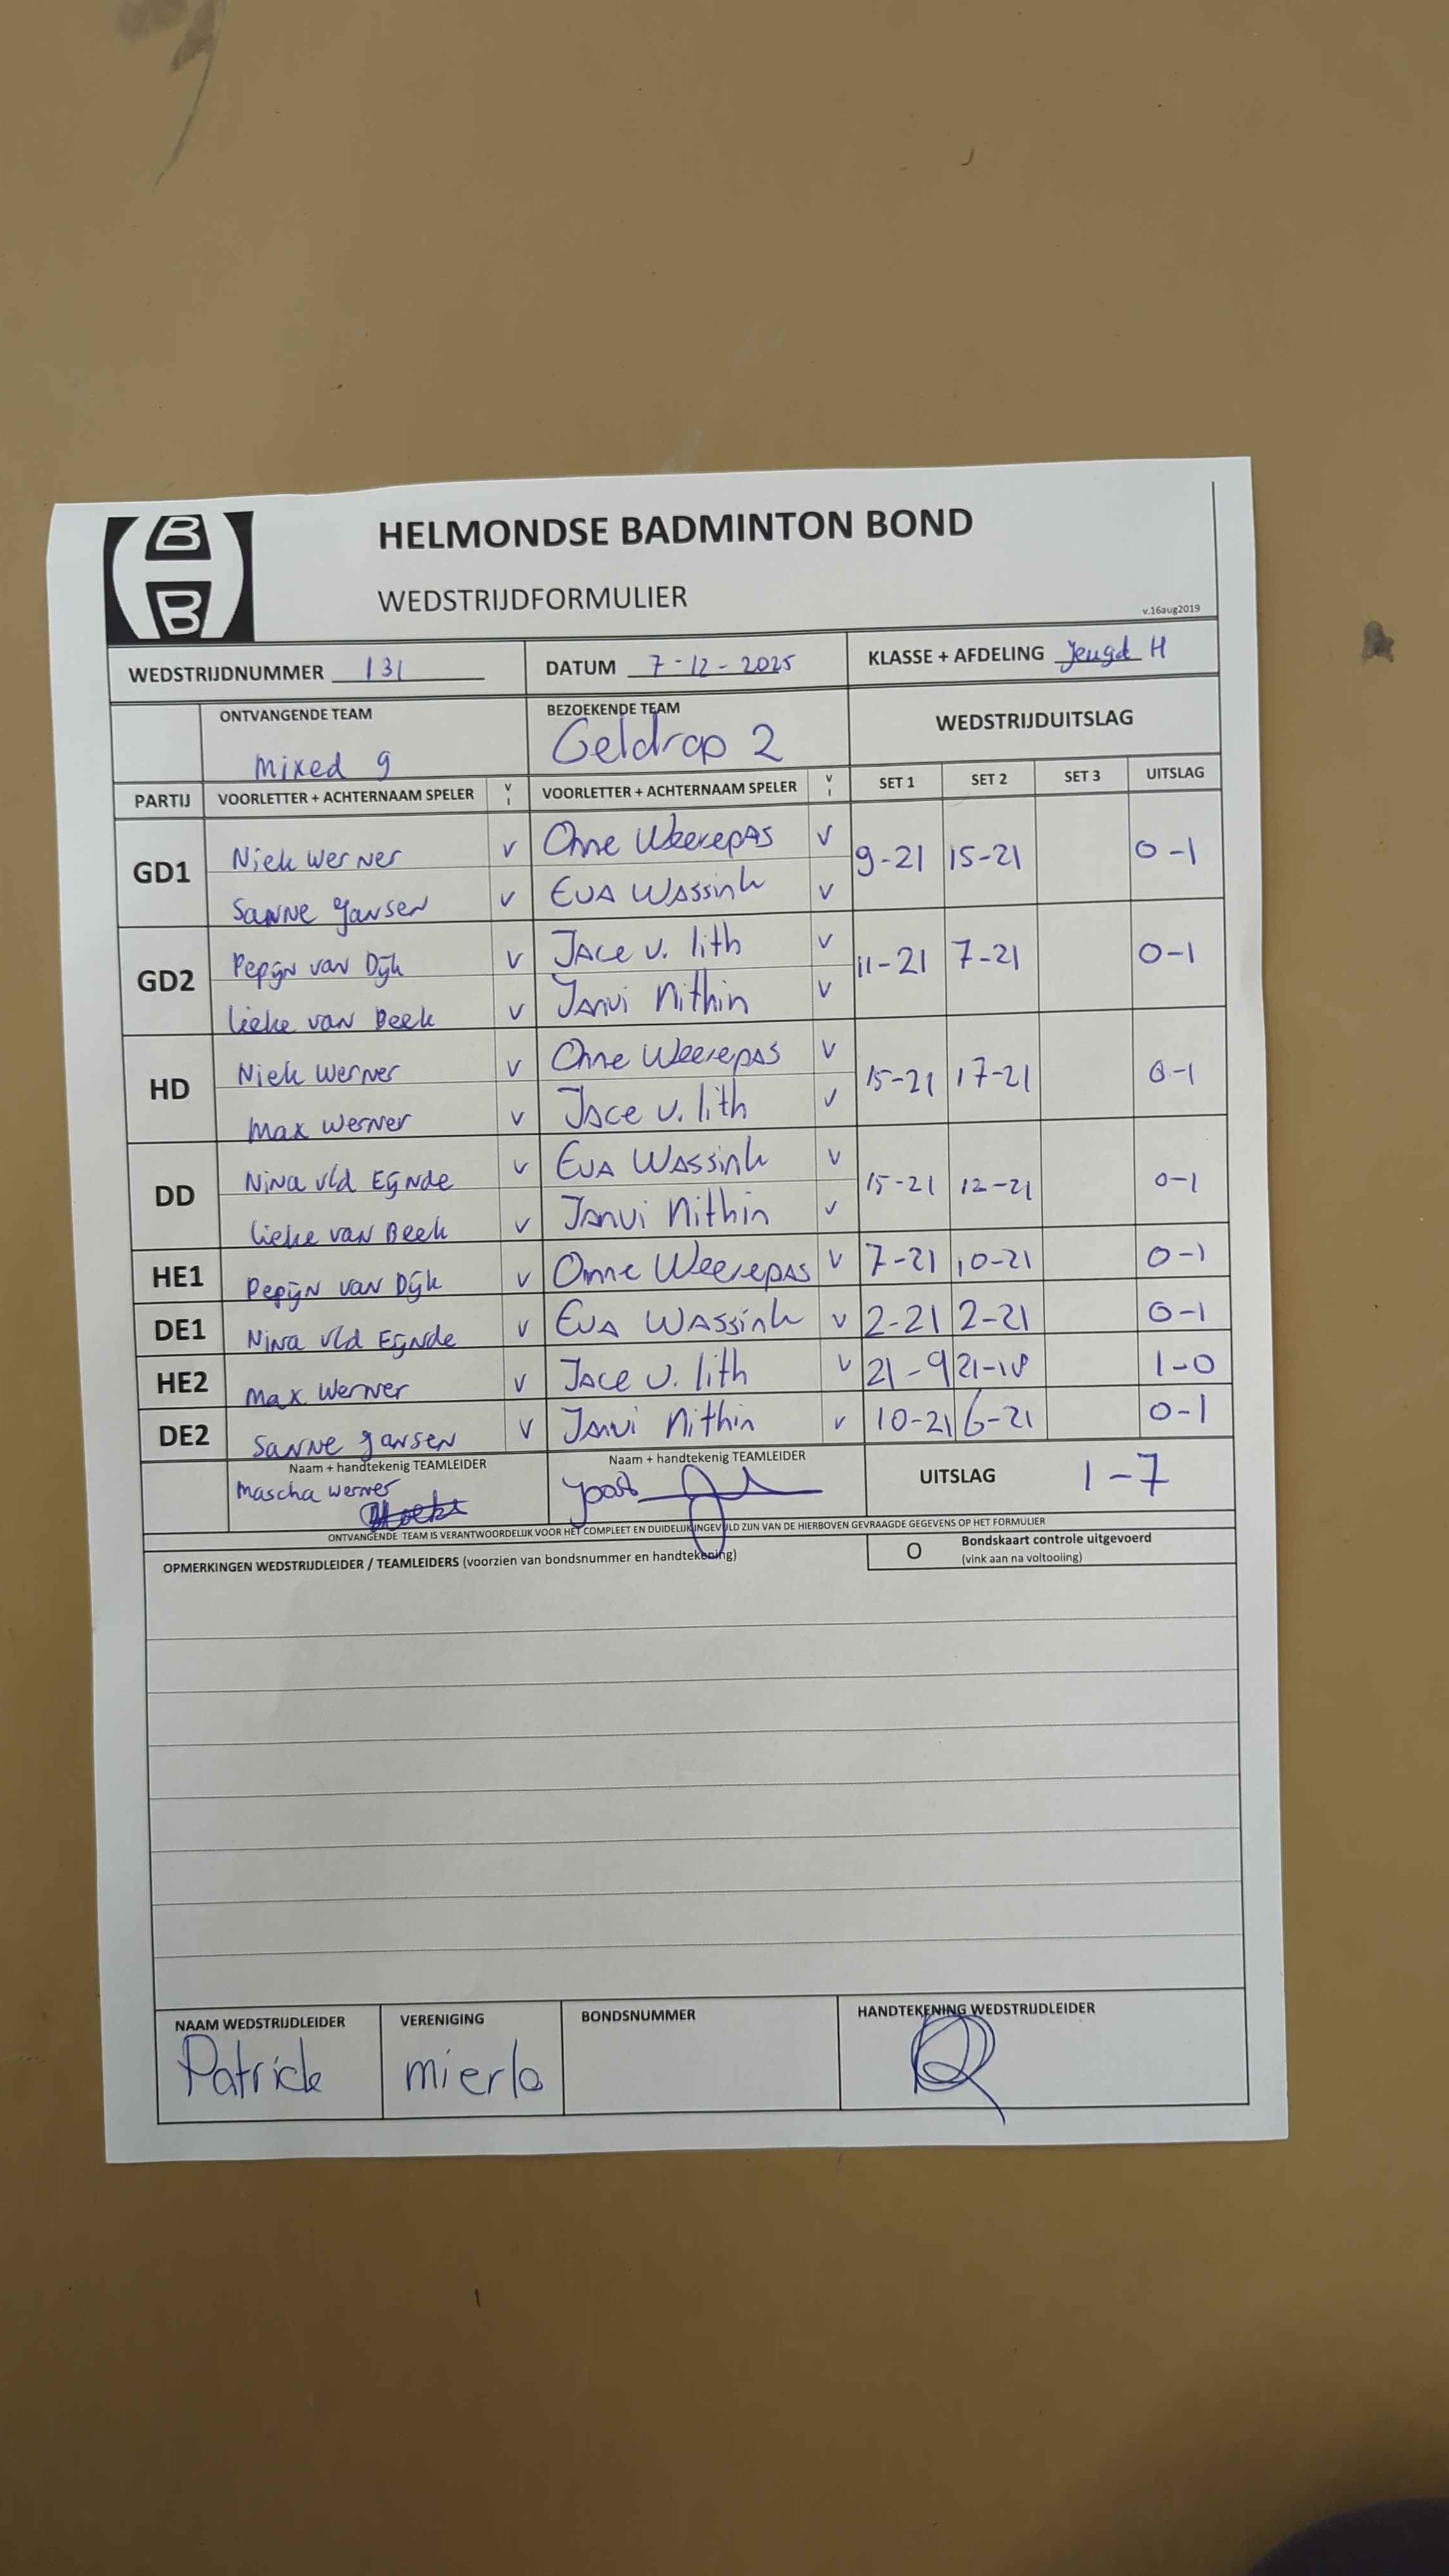 B
B
HELMONDSE BADMINTON BOND
WEDSTRIJDFORMULIER
v.16aug2019
WEDSTRIJDNUMMER 131 DATUM 7-12-2025 KLASSE + AFDELING Jeugd H
ONTVANGENDE TEAM BEZOEKENDE TEAM WEDSTRIJDUITSLAG
Mixed 9 Geldrop 2
PARTIJ VOORLETTER + ACHTERNAAM SPELER V I VOORLETTER + ACHTERNAAM SPELER V I SET 1 SET 2 SET 3 UITSLAG
GD1 Niek Werner v Onne Weerepas v 9-21 15-21 0-1
Sanne Jansen v Eva Wassink v
GD2 Pepijn van Dijk v Jace v. lith v 11-21 7-21 0-1
Lieke van Beek v Janvi Nithin v
HD Niek Werner v Onne Weerepas v 15-21 17-21 0-1
Max Werner v Jace v. lith v
DD Nina v/d Eijnde v Eva Wassink v 15-21 12-21 0-1
Lieke van Beek v Janvi Nithin v
HE1 Pepijn van Dijk v Onne Weerepas v 7-21 10-21 0-1
DE1 Nina v/d Eijnde v Eva Wassink v 2-21 2-21 0-1
HE2 Max Werner v Jace v. lith v 21-9 21-18 1-0
DE2 Sanne Jansen v Janvi Nithin v 10-21 6-21 0-1
Naam + handtekenig TEAMLEIDER Naam + handtekenig TEAMLEIDER UITSLAG 1-7
Mascha Werner
ONTVANGENDE TEAM IS VERANTWOORDELIJK VOOR HET COMPLEET EN DUIDELIJK INGEVULD ZIJN VAN DE HIERBOVEN GEVRAAGDE GEGEVENS OP HET FORMULIER
OPMERKINGEN WEDSTRIJDLEIDER / TEAMLEIDERS (voorzien van bondsnummer en handtekening) O Bondskaart controle uitgevoerd
(vink aan na voltooiing)
NAAM WEDSTRIJDLEIDER VERENIGING BONDSNUMMER HANDTEKENING WEDSTRIJDLEIDER
Patrick mierlo